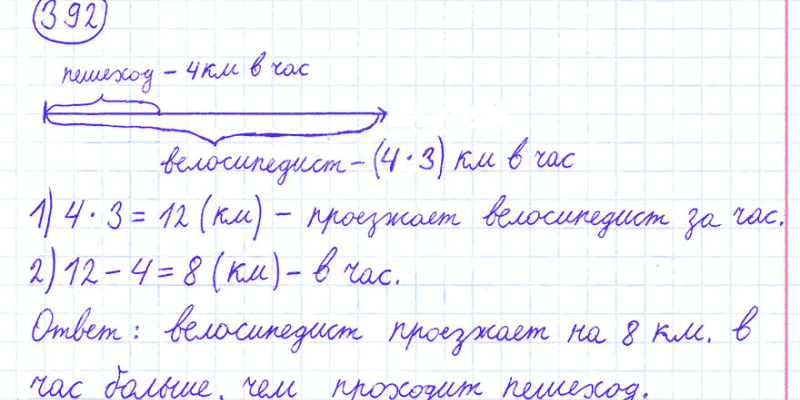 392
пешеход - 4 км в час
велосипедист - (4 · 3) км в час
1) 4 · 3 = 12 (км) - проезжает велосипедист за час.
2) 12 - 4 = 8 (км) - в час.
Ответ: велосипедист проезжает на 8 км. в
час больше, чем проходит пешеход.